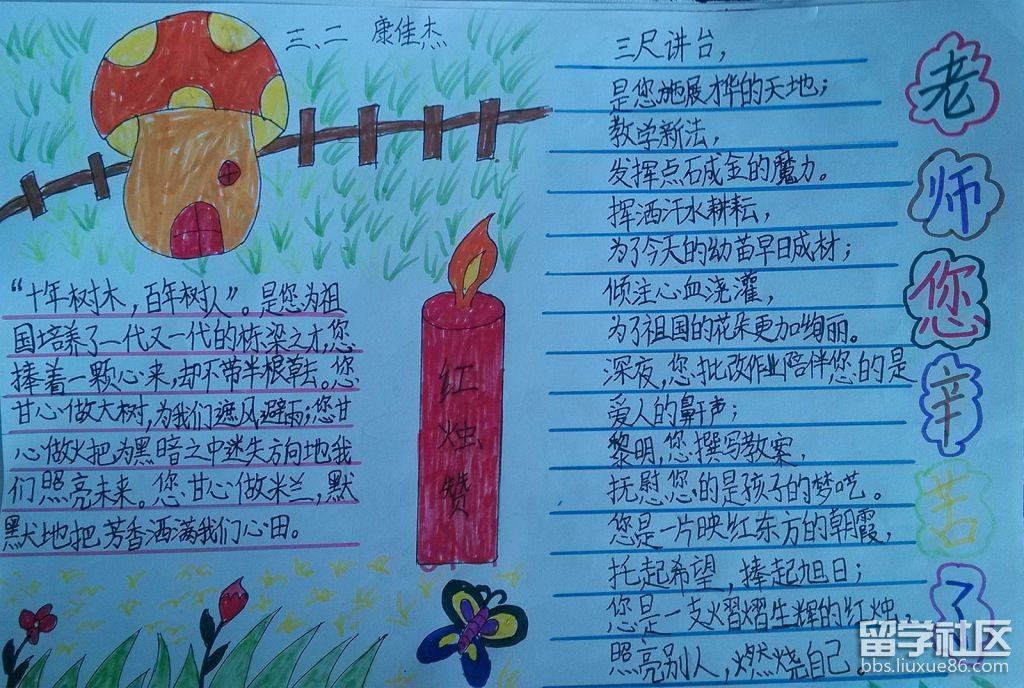 三、二 康佳杰
“十年树木，百年树人”。是您为祖
国培养了一代又一代的栋梁之才，您
捧着一颗心来，却不带半根草去。您
甘心做大树，为我们遮风避雨；您甘
心做火把为黑暗之中迷失方向地我
们照亮未来。您甘心做米兰，默
默地把芳香洒满我们心田。
红烛赞
三尺讲台，
是您施展才华的天地；
教学新法，
发挥点石成金的魔力。
挥洒汗水耕耘，
为了今天的幼苗早日成材；
倾注心血浇灌，
为了祖国的花朵更加绚丽。
深夜，您批改作业陪伴您的是
爱人的鼾声；
黎明，您撰写教案，
抚慰您的是孩子的梦呓。
您是一片映红东方的朝霞，
托起希望，捧起旭日；
您是一支熠熠生辉的红烛，
照亮别人，燃烧自己。
老师您辛苦了
留学社区
bbs.liuxue86.com